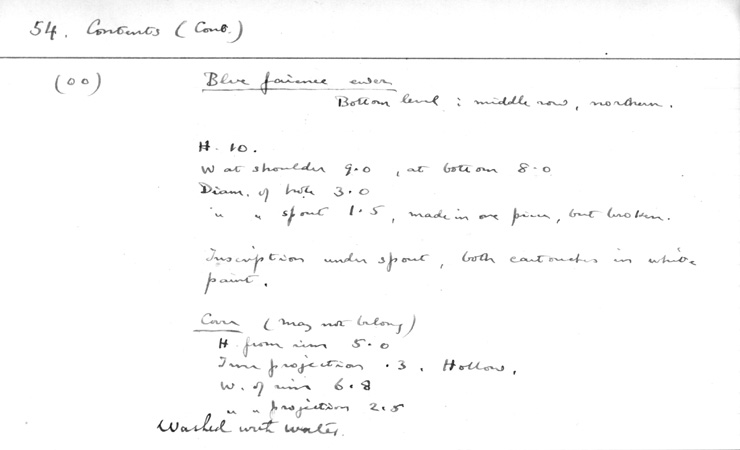 54. Contents (Cont.)
(00)
Blue faience ewer
Bottom level : middle row, northern.
H. 10.
W at shoulder 9.0, at bottom 8.0
Diam. of hole 3.0
" " spout 1.5, made in one piece, but broken.
Inscription under spout, both cartouches in white
paint.
Cover (may not belong)
H from rim 5.0
Inner projection .3. Hollow.
W. of rim 6.8
" " projection 2.5
Washed with water.